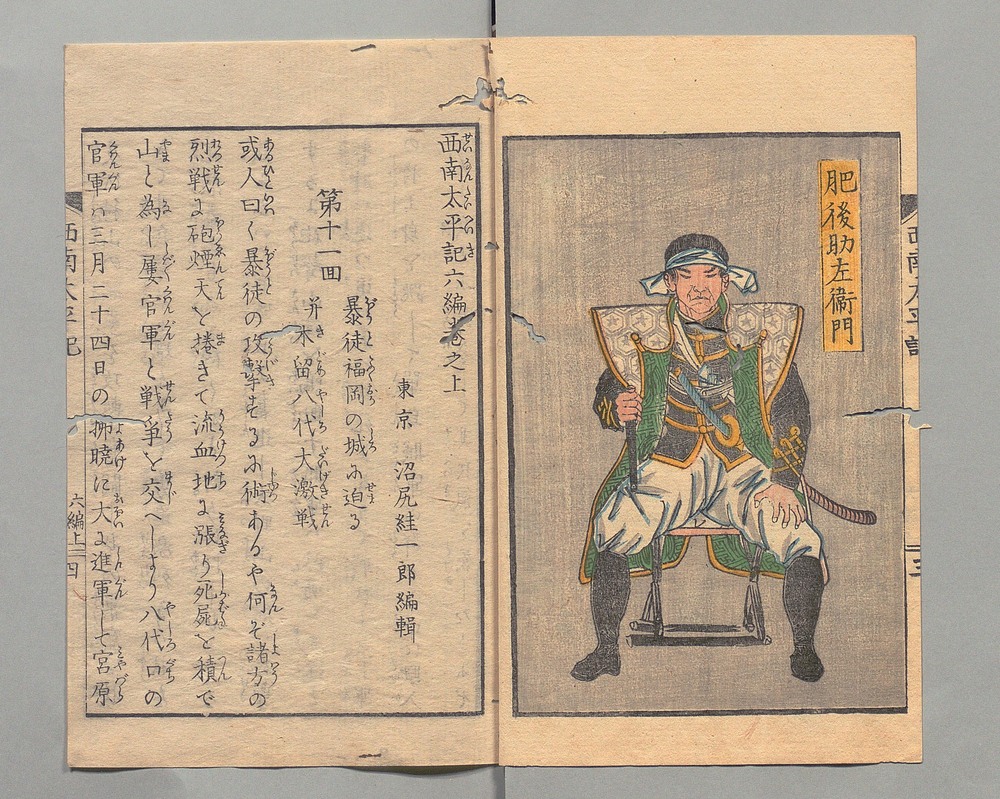 肥後助左衞門
西南太平記六編巻之上
東京 沼尻絓一郎編輯
第十一回
暴徒福岡の城に迫る
并木留八代大激戦
或人曰く暴徒の攻撃する小術あるや何ぞ諸方の
烈戦に砲煙天を捲きて流血地に漲り死屍を積で
山と為し屢官軍と戦爭を交へしより八代口の
官軍ハ三月二十四日の拂曉に大に進軍して宮原
西南太平記
六編上 四